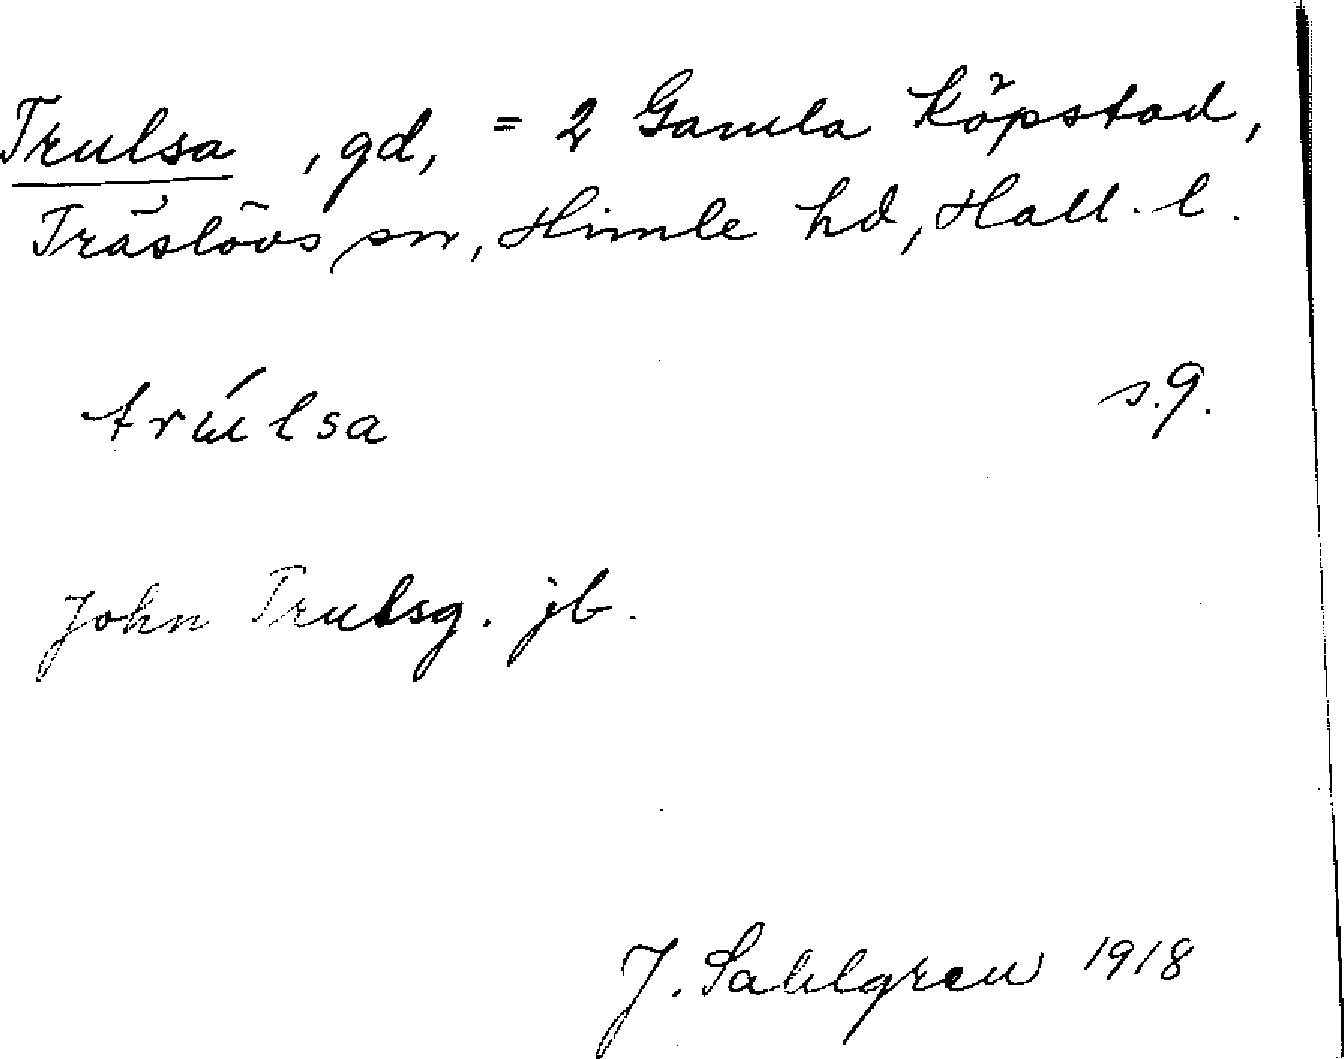 Trulsa , gd, = 2 Gamla Köpstad,
Träslövs sn, Himle hd, Hall. l.
trúlsa s.g.
John Trulsg. jb.
J. Sahlgren 1918